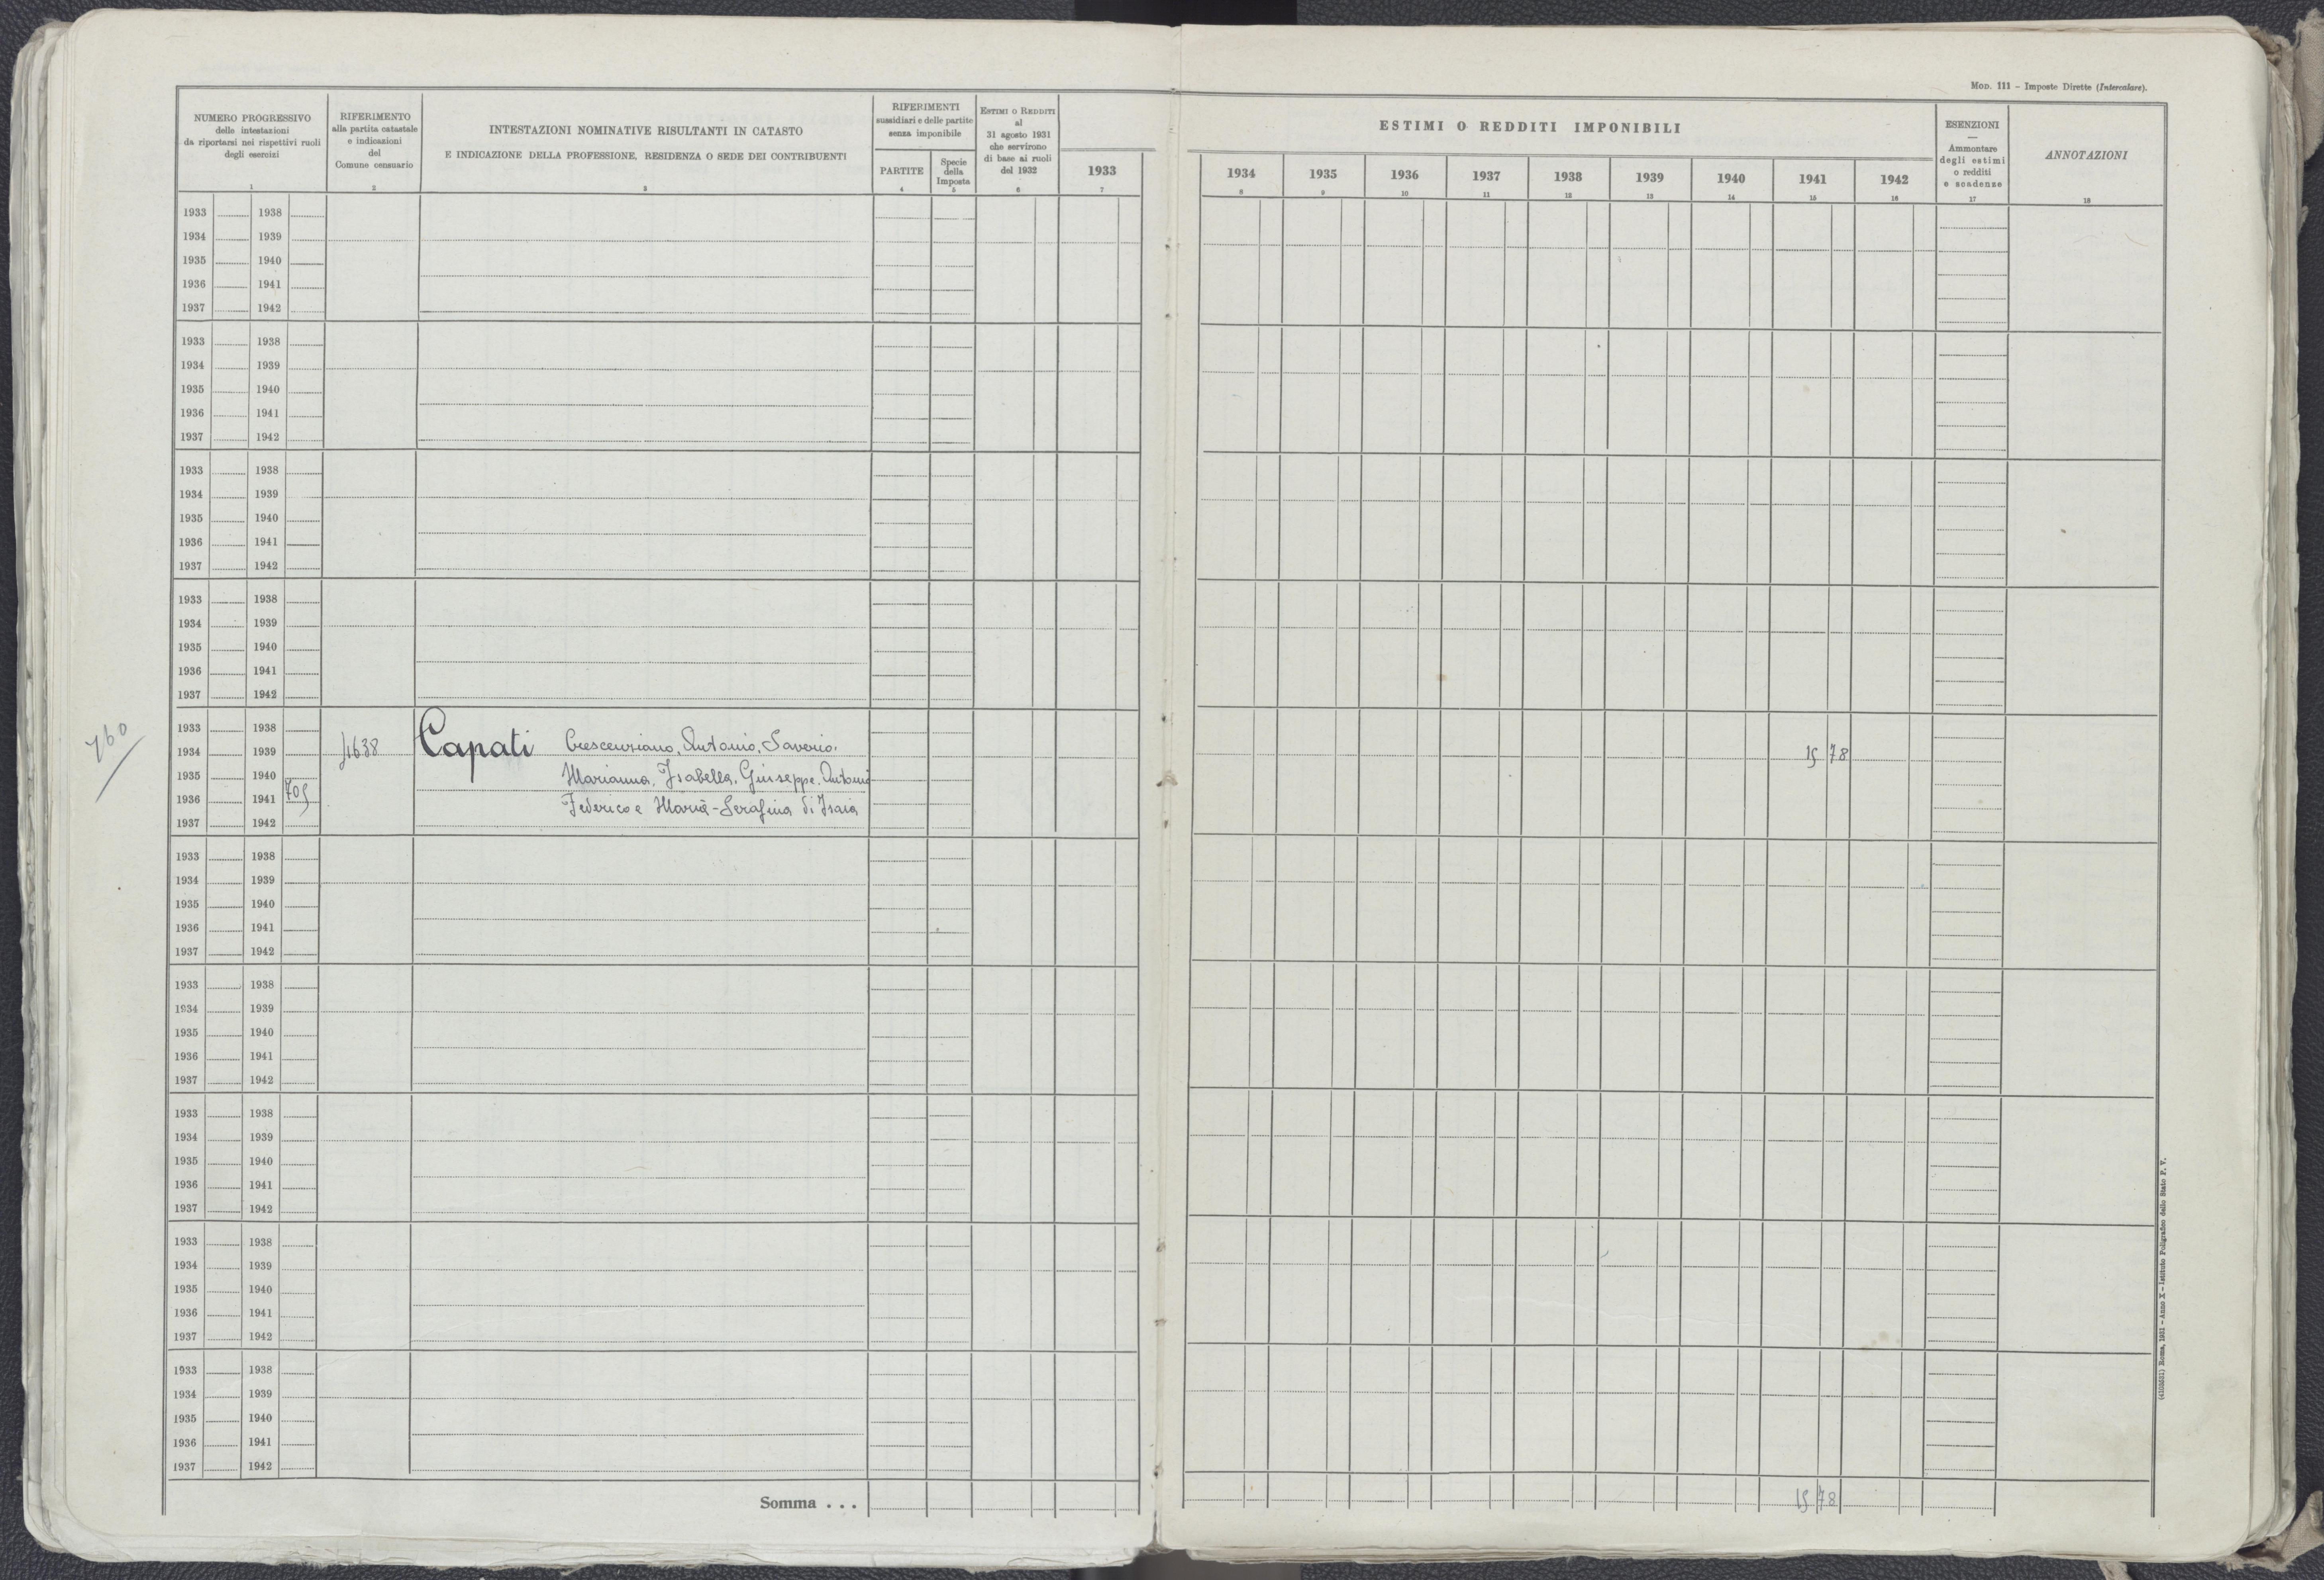 Mod. 111 - Imposte Dirette (Intercalare).
NUMERO PROGRESSIVO
delle intestazioni
da riportarsi nei rispettivi ruoli
degli esercizi
1
RIFERIMENTO
alla partita catastale
e indicazioni
del
Comune censuario
2
INTESTAZIONI NOMINATIVE RISULTANTI IN CATASTO
E INDICAZIONE DELLA PROFESSIONE, RESIDENZA O SEDE DEI CONTRIBUENTI
3
RIFERIMENTI
sussidiari e delle partite
senza imponibile
PARTITE
4
Specie
della
Imposta
5
Estimi o Redditi
al
31 agosto 1931
che servirono
di base ai ruoli
del 1932
6
1933
7
ESTIMI O REDDITI IMPONIBILI
1934 1935 1936 1937 1938 1939 1940 1941 1942
8 9 10 11 12 13 14 15 16
ESENZIONI
—
Ammontare
degli estimi
o redditi
e scadenze
17
ANNOTAZIONI
18
1933 1938
1934 1939
1935 1940
1936 1941
1937 1942
1933 1938
1934 1939
1935 1940
1936 1941
1937 1942
1933 1938
1934 1939
1935 1940
1936 1941
1937 1942
1933 1938
1934 1939
1935 1940
1936 1941
1937 1942
760
1933 1938
1934 1939 1638 Capati Crescenziano, Antonio, Saverio, 15 78
1935 1940 Marianna, Isabella, Giuseppe, Antonio
1936 1941 705 Federico e Maria-Serafina di Isaia
1937 1942
1933 1938
1934 1939
1935 1940
1936 1941
1937 1942
1933 1938
1934 1939
1935 1940
1936 1941
1937 1942
1933 1938
1934 1939
1935 1940
1936 1941
1937 1942
1933 1938
1934 1939
1935 1940
1936 1941
1937 1942
1933 1938
1934 1939
1935 1940
1936 1941
1937 1942
Somma . . . 15 78
Roma, 1931 - Anno X - Istituto Poligrafico dello Stato P. V.